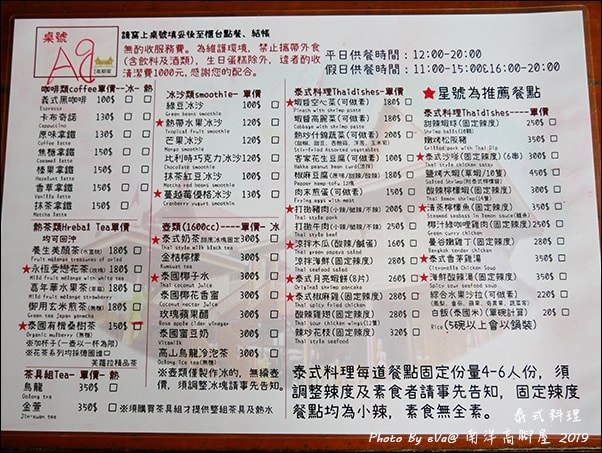 桌號
A9
請窩上桌號填妥後至櫃台點餐、結帳
無酌收服務費。為維護環境，禁止攜帶外食
(含飲料及酒類)，生日蛋糕除外，違者酌收
清潔費1000元，感謝您的配合。
平日供餐時間：12:00-20:00
假日供餐時間：11:00-15:00&16:00-20:00
咖啡類coffee單價--冰-熱
義式黑咖啡 100$
Espresso
卡布奇諾 130$
Cappuccino
原味拿鐵 130$
Coffee Latte
焦糖拿鐵 150$
Caramel Latte
榛果拿鐵 150$
Hazelnut Latte
香草拿鐵 150$
Vanilla Latte
抹茶拿鐵 150$
Matcha Latte
熱茶類Hrebal Tea單價
均可回沖
養生美顏茶(水蜜桃) 180$
Fruit mélange treasures of orient
★永恆愛戀花茶(玫瑰) 180$
Mild fruit mélange with rose
嘉年華水果茶(草莓) 180$
Mild fruit mélange strawberry
御用玄米煎茶(無糖) 180$
Green tea
★泰國有機桑樹茶 150$
Organic mulberry (無糖)
☆加杯子(一壺以一杯為限)
☆花茶系列均採德國進口
芙蘿拉精品茶
茶具組Tea- 單價- 熱
烏龍 350$
Oolong tea
金萱 350$
Jin-xuan tea
※須購買茶具組才提整組茶具及熱水
冰沙類smoothie-單價
綠豆冰沙 100$
Green beans smoothie
★熱帶水果冰沙 120$
Tropical fruit smoothie
芒果冰沙 120$
Mango smoothie
比利時巧克力冰沙 120$
Chocolate smoothie
抹茶紅豆冰沙 120$
Matcha red beans smoothie
★蔓越莓優格冰沙 130$
Cranberry yogurt smoothie
壺類(1600cc)----單價- 冰
★泰式奶茶(甜度冰塊固定) 300$
Thai style milk black tea
金桔檸檬 300$
Kumquat tea
泰國椰子水 300$
Thai coconut juice
泰國椰花香蜜 300$
Thai Coconut Juice
玫瑰蘋果醋 300$
Rose apple cider vinegar
泰國蜜豆奶 300$
Vitamilk
高山烏龍冷泡茶 300$
Oolong ice tea(無糖)
※壺類僅製作冰的，無續壺
價，須調整冰塊請事先告知。
泰式料理Thaidishes-單價
★蝦醬空心菜(可做素) 180$
Pinach with shrimp paste
蝦醬高麗菜(可做素) 200$
Cabbage with shrimp paste
熱炒什錦蔬菜(可做素) 200$
Stir-fried Assorted vegetables
客家花生豆腐(可做素) 100$
Hakka peanut bean curd(無辣)
椒麻豆腐(原味/甜辣/酸辣) 180$
Pepper hemp tofu 12塊
肉末煎蛋(可做素) 180$
Frying eggs
★打拋豬肉(小辣/酸辣/不辣) 200$
Thai style pork
打拋牛肉(小辣/酸辣/不辣) 250$
Thai style beef
★涼拌木瓜(酸辣/鹹蛋) 160$
Thai green papaya salad
涼拌海鮮(固定辣度) 280$
Thai style seafood salad
★泰式月亮蝦餅(8片) 260$
Thai shrimp cake
★泰式椒麻雞(固定辣度) 280$
Thai spicy fried chicken
酸辣雞翅(固定辣度) 280$
Thai sour chicken wings(12隻)
辣炒花枝(固定辣度) 320$
Thai style seafood
★星號為推薦餐點
泰式料理Thaidishes----單價
甜辣蝦球(固定辣度) 250$
Shrimp balls(12顆)
嫩烤松阪豬 350$
Grilled pork with Thai Dip
★泰式沙嗲(固定辣度)(6串) 300$
Thai chicken satay
鹽烤大蝦(草蝦/10隻) 450$
Salted shrimp
酸辣檸檬蝦(固定辣度) 300$
Thai style shrimp
★清蒸檸檬魚(固定辣度) 450$
椰汁綠咖哩雞(固定辣度) 250$
Green curry chicken
曼谷嫩雞丁(固定辣度) 280$
Bangkok tender chicken
★泰式香茅雞湯 350$
Citronella Chicken Soup
★海鮮酸辣湯(固定辣度) 350$
Thai spicy seafood soup
綜合水果沙拉(可做素) 220$
白飯(泰國米)(單碗計算) 20$
Rice (5碗以上會以鍋裝)
泰式料理每道餐點固定份量4-6人份，須
調整辣度及素食者請事先告知，固定辣度
餐點均為小辣，素食無全素。
泰式料理
Photo By eVa@ 南洋高腳屋 2019